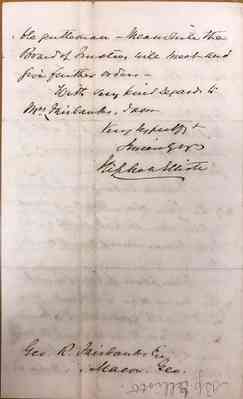 ble gentleman - Meanwhile the
Board of Trustees will meet and
give further orders -
With very kind regards to
Mrs Fairbanks, I am
Very respectfy &
Sincerely yrs
Stephen Elliott
Geo. R. Fairbanks Esq
Macon. Geo.